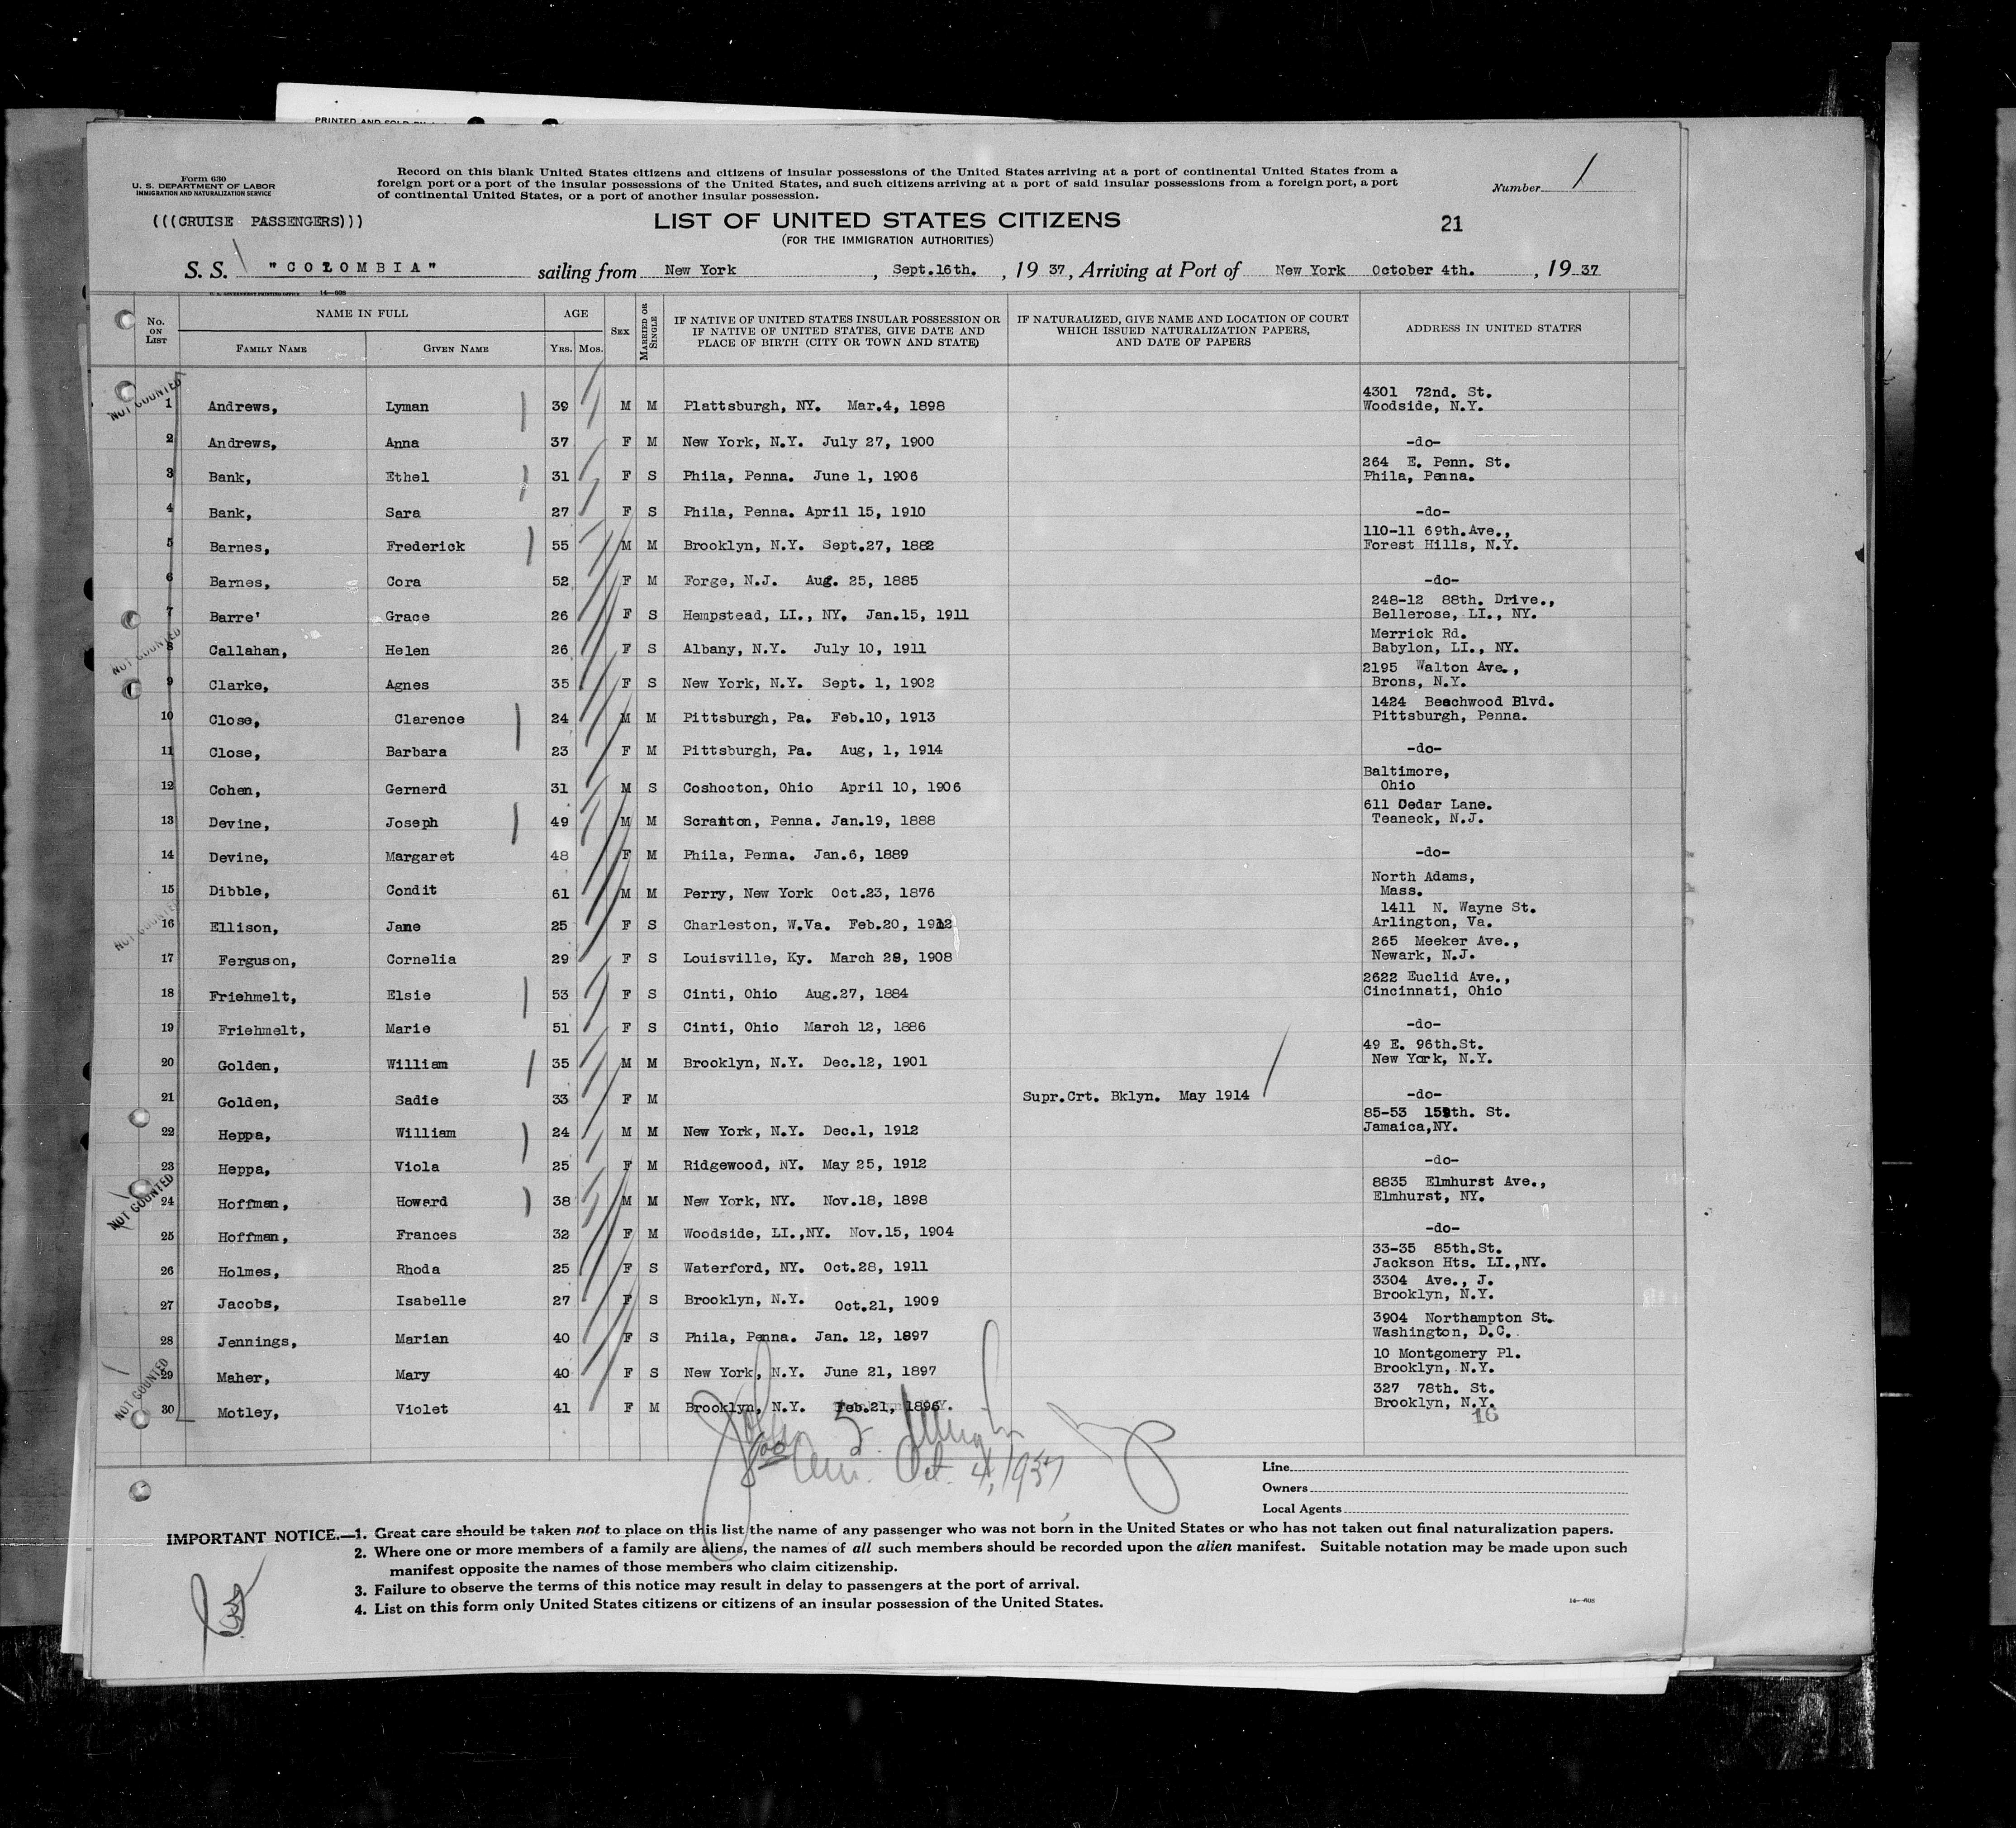 PRINTED AND SOLD BY
Form 630
U. S. DEPARTMENT OF LABOR
IMMIGRATION AND NATURALIZATION SERVICE
Record on this blank United States citizens and citizens of insular possessions of the United States arriving at a port of continental United States from a
foreign port or a port of the insular possessions of the United States, and such citizens arriving at a port of said insular possessions from a foreign port, a port
of continental United States, or a port of another insular possession.
Number 1
(((CRUISE PASSENGERS)))
LIST OF UNITED STATES CITIZENS
21
(FOR THE IMMIGRATION AUTHORITIES)
S. S. "COLOMBIA" sailing from New York, Sept.16th., 19 37, Arriving at Port of New York October 4th., 19 37
U. S. GOVERNMENT PRINTING OFFICE 14—608
No. ON LIST
NAME IN FULL
FAMILY NAME GIVEN NAME
AGE
YRS. MOS.
SEX
MARRIED OR SINGLE
IF NATIVE OF UNITED STATES INSULAR POSSESSION OR
IF NATIVE OF UNITED STATES, GIVE DATE AND
PLACE OF BIRTH (CITY OR TOWN AND STATE)
IF NATURALIZED, GIVE NAME AND LOCATION OF COURT
WHICH ISSUED NATURALIZATION PAPERS,
AND DATE OF PAPERS
ADDRESS IN UNITED STATES
NOT COUNTED
4301 72nd. St.
1 Andrews, Lyman 39 M M Plattsburgh, NY. Mar.4, 1898 Woodside, N.Y.
2 Andrews, Anna 37 F M New York, N.Y. July 27, 1900 -do-
264 E. Penn. St.
3 Bank, Ethel 31 F S Phila, Penna. June 1, 1906 Phila, Penna.
4 Bank, Sara 27 F S Phila, Penna. April 15, 1910 -do-
110-11 69th.Ave.,
5 Barnes, Frederick 55 M M Brooklyn, N.Y. Sept.27, 1882 Forest Hills, N.Y.
6 Barnes, Cora 52 F M Forge, N.J. Aug. 25, 1885 -do-
248-12 88th. Drive.,
7 Barre' Grace 26 F S Hempstead, LI., NY. Jan.15, 1911 Bellerose, LI., NY.
NOT COUNTED
Merrick Rd.
8 Callahan, Helen 26 F S Albany, N.Y. July 10, 1911 Babylon, LI., NY.
2195 Walton Ave.,
9 Clarke, Agnes 35 F S New York, N.Y. Sept. 1, 1902 Brons, N.Y.
1424 Beachwood Blvd.
10 Close, Clarence 24 M M Pittsburgh, Pa. Feb.10, 1913 Pittsburgh, Penna.
11 Close, Barbara 23 F M Pittsburgh, Pa. Aug, 1, 1914 -do-
Baltimore,
12 Cohen, Gernerd 31 M S Coshocton, Ohio April 10, 1906 Ohio
611 Cedar Lane.
13 Devine, Joseph 49 M M Scranton, Penna. Jan.19, 1888 Teaneck, N.J.
14 Devine, Margaret 48 F M Phila, Penna. Jan.6, 1889 -do-
North Adams,
15 Dibble, Condit 61 M M Perry, New York Oct.23, 1876 Mass.
NOT COUNTED
1411 N. Wayne St.
16 Ellison, Jane 25 F S Charleston, W.Va. Feb.20, 1912 Arlington, Va.
265 Meeker Ave.,
17 Ferguson, Cornelia 29 F S Louisville, Ky. March 28, 1908 Newark, N.J.
2622 Euclid Ave.,
18 Friehmelt, Elsie 53 F S Cinti, Ohio Aug.27, 1884 Cincinnati, Ohio
19 Friehmelt, Marie 51 F S Cinti, Ohio March 12, 1886 -do-
49 E. 96th.St.
20 Golden, William 35 M M Brooklyn, N.Y. Dec.12, 1901 New York, N.Y.
21 Golden, Sadie 33 F M Supr.Crt. Bklyn. May 1914 -do-
85-53 159th. St.
22 Heppa, William 24 M M New York, N.Y. Dec.1, 1912 Jamaica,NY.
23 Heppa, Viola 25 F M Ridgewood, NY. May 25, 1912 -do-
NOT COUNTED
8835 Elmhurst Ave.,
24 Hoffman, Howard 38 M M New York, NY. Nov.18, 1898 Elmhurst, NY.
25 Hoffman, Frances 32 F M Woodside, LI.,NY. Nov.15, 1904 -do-
33-35 85th.St.
26 Holmes, Rhoda 25 F S Waterford, NY. Oct.28, 1911 Jackson Hts. LI.,NY.
3304 Ave., J.
27 Jacobs, Isabelle 27 F S Brooklyn, N.Y. Oct.21, 1909 Brooklyn, N.Y.
3904 Northampton St.
28 Jennings, Marian 40 F S Phila, Penna. Jan. 12, 1897 Washington, D.C.
10 Montgomery Pl.
29 Maher, Mary 40 F S New York, N.Y. June 21, 1897 Brooklyn, N.Y.
NOT COUNTED
327 78th. St.
30 Motley, Violet 41 F M Brooklyn, N.Y. Feb.21, 1896 Brooklyn, N.Y.
16
Oct. 4, 1937
Line
Owners
Local Agents
IMPORTANT NOTICE.—1. Great care should be taken not to place on this list the name of any passenger who was not born in the United States or who has not taken out final naturalization papers.
2. Where one or more members of a family are aliens, the names of all such members should be recorded upon the alien manifest. Suitable notation may be made upon such
manifest opposite the names of those members who claim citizenship.
3. Failure to observe the terms of this notice may result in delay to passengers at the port of arrival.
4. List on this form only United States citizens or citizens of an insular possession of the United States.
14—608